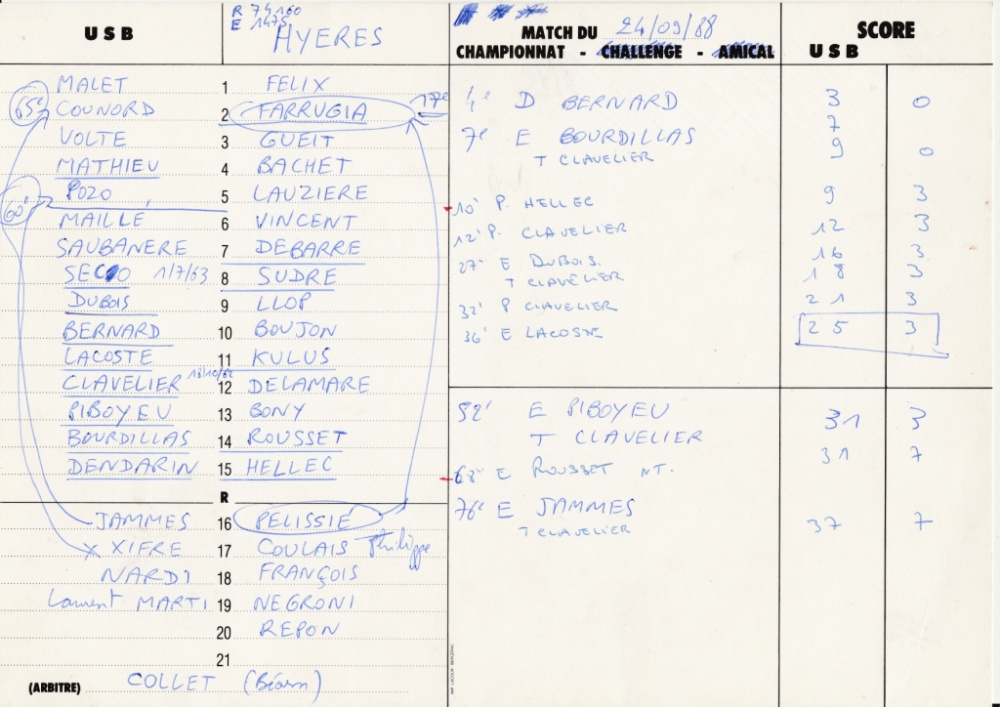 USB
R 74160
E 1475
HYERES
MATCH DU 24/09/88
CHAMPIONNAT - CHALLENGE - AMICAL
SCORE
USB
65e
60'
17e
MALET 1 FELIX
COUNORD 2 FARRUGIA
VOLTE 3 GUEIT
MATHIEU 4 BACHET
POZO 5 LAUZIERE
MAILLÉ 6 VINCENT
SAUBANERE 7 DEBARRE
SECO 1/7/63 8 SUDRE
DUBOIS 9 LLOP
BERNARD 10 BOUJON
LACOSTE 11 KULUS
CLAVELIER 12 DELAMARE
PIBOYEU 13 BONY
BOURDILLAS 14 ROUSSET
DENDARIN 15 HELLEC
R
JAMMES 16 PELISSIE
X XIFRE 17 COULAIS Philippe
NARDI 18 FRANÇOIS
Laurent MARTI 19 NEGRONI
20 REPON
21
(ARBITRE) COLLET (Béarn)
4e D BERNARD 3 0
7e E BOURDILLAS 7
T CLAVELIER 9 0
10' P. HELLEC 9 3
12' P. CLAVELIER 12 3
27' E DUBOIS. 16 3
T CLAVELIER 18 3
32' P CLAVELIER 21 3
36' E LACOSTE 25 3
52' E PIBOYEU 31 3
T CLAVELIER
68' E ROUSSET NT. 31 7
76e E JAMMES
T CLAVELIER 37 7